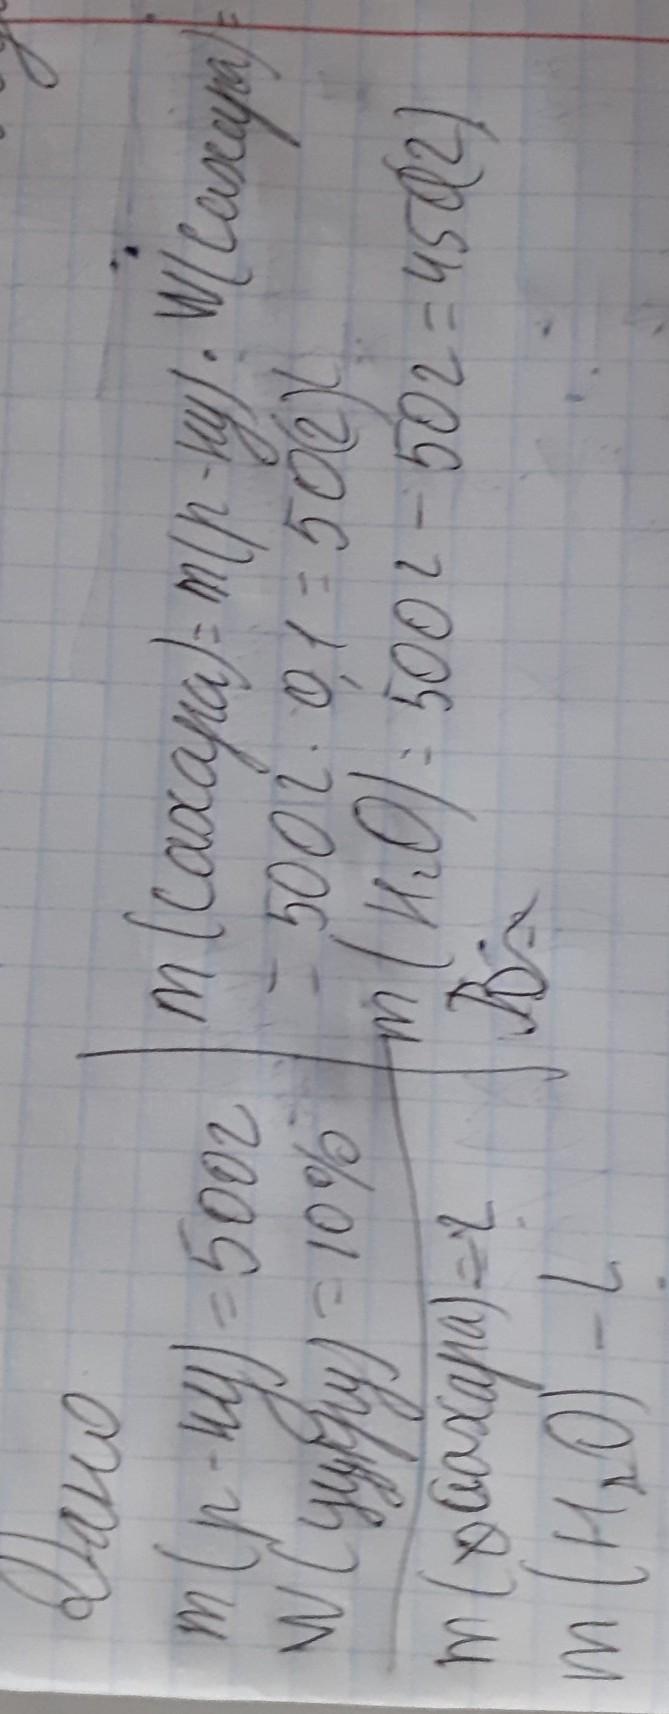 Дано
m(р-ну)=500г
W(цукру)=10%
m(сахара)=?
m(H₂O) - ?
m(сахара)=m(р-ну)·W(сахара)=
=500г·0,1=50(г)
m(H₂O)=500г-50г=450(г)